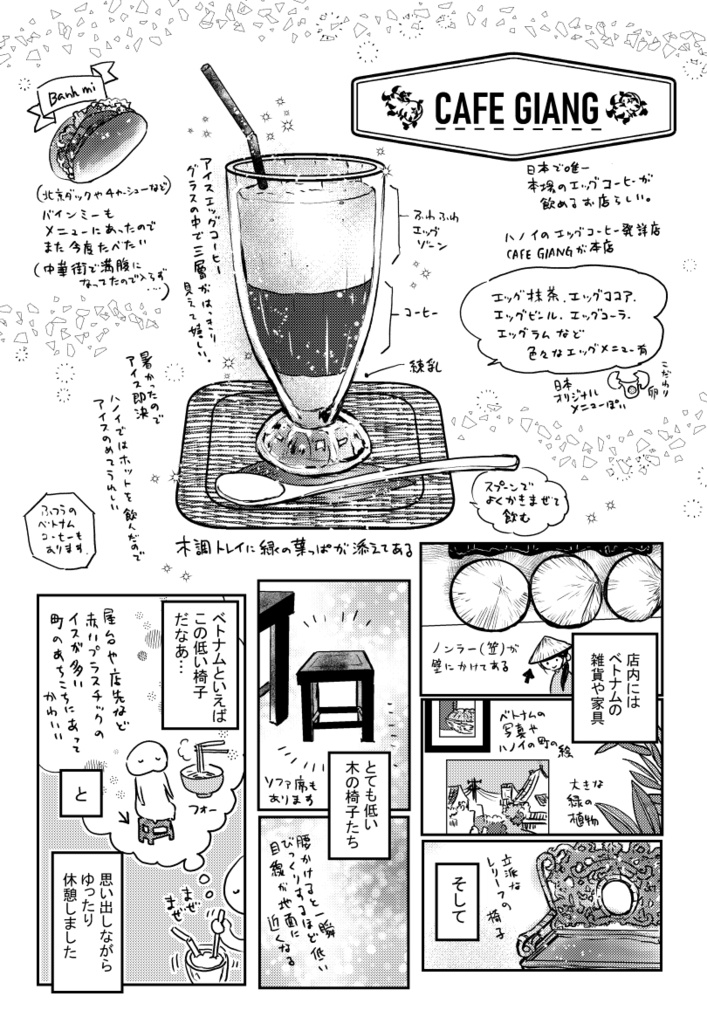 CAFE GIANG
日本で唯一
本場のエッグコーヒーが
飲めるお店らしい。
ハノイのエッグコーヒー発祥店
CAFE GIANGが本店
エッグ抹茶、エッグココア、
エッグビール、エッグコーラ、
エッグラムなど
色々なエッグメニュー有
こだわり
卵
日本
オリジナル
メニューぽい
ふわふわ
エッグ
ゾーン
コーヒー
練乳
アイスエッグコーヒー
グラスの中で三層がはっきり
見えて嬉しい。
Banh mi
(北京ダックやチャーシューなど)
バインミーも
メニューにあったので
また今度たべたい
(中華街で満腹に
なってたので入らず
…)
暑かったので
アイス即決
ハノイではホットを飲んだので
アイスのめてうれしい
ふつうの
ベトナム
コーヒーも
あります
スプーンで
よくかきまぜて
飲む
木調トレイに緑の葉っぱが添えてある
店内には
ベトナムの
雑貨や家具
ノンラー(笠)が
壁にかけてある
ベトナムの
写真や
ハノイの町の絵
大きな
緑の
植物
そして
立派な
レリーフの
椅子
とても低い
木の椅子たち
ソファ席も
あります
腰かけると一瞬
びっくりするほど低い
目線が地面に
近くなる
ベトナムといえば
この低い椅子
だなあ…
屋台や店先など
赤いプラスチックの
イスが多い
町のあちこちにあって
かわいい
フォー
と
思い出しながら
ゆったり
休憩しました
まぜ
まぜ